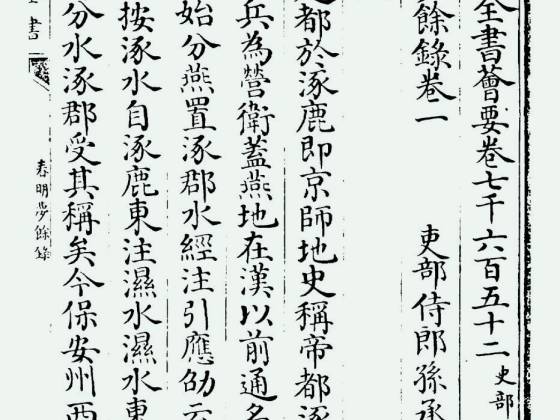 全書薈要卷七千六百五十二 史部
餘錄卷一 吏部侍郎孫承
都於涿鹿即京師地史稱帝都涿
兵為營衛蓋燕地在漢以前通名
始分燕置涿郡水經注引應劭云
按涿水自涿鹿東注㶟水㶟水東
分水涿郡受其稱矣今保安州西
書
春明夢餘錄